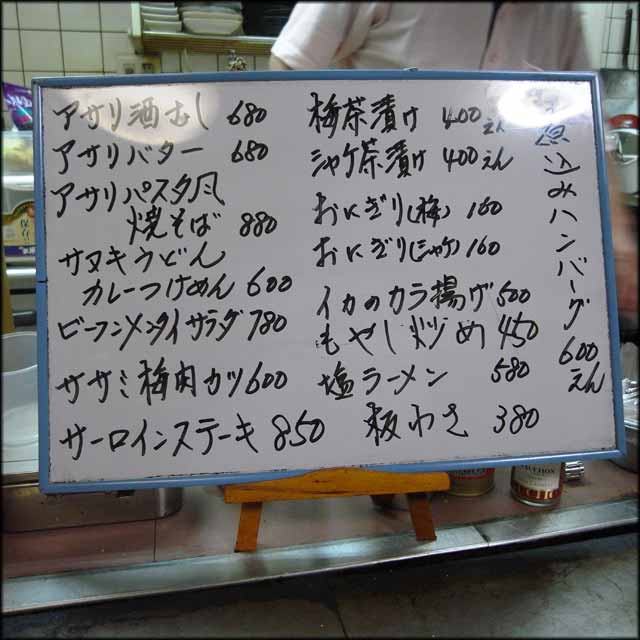 アサリ酒むし 680
アサリバター 680
アサリパスタ風
焼そば 880
サヌキうどん
カレーつけめん 600
ビーフンメンタイサラダ 780
ササミ梅肉カツ 600
サーロインステーキ 850
梅茶漬け 400えん
シャケ茶漬け 400えん
おにぎり(梅) 160
おにぎり(シャケ) 160
イカのカラ揚げ 500
もやし炒め 450
塩ラーメン 580
板わさ 380
煮込みハンバーグ 600えん